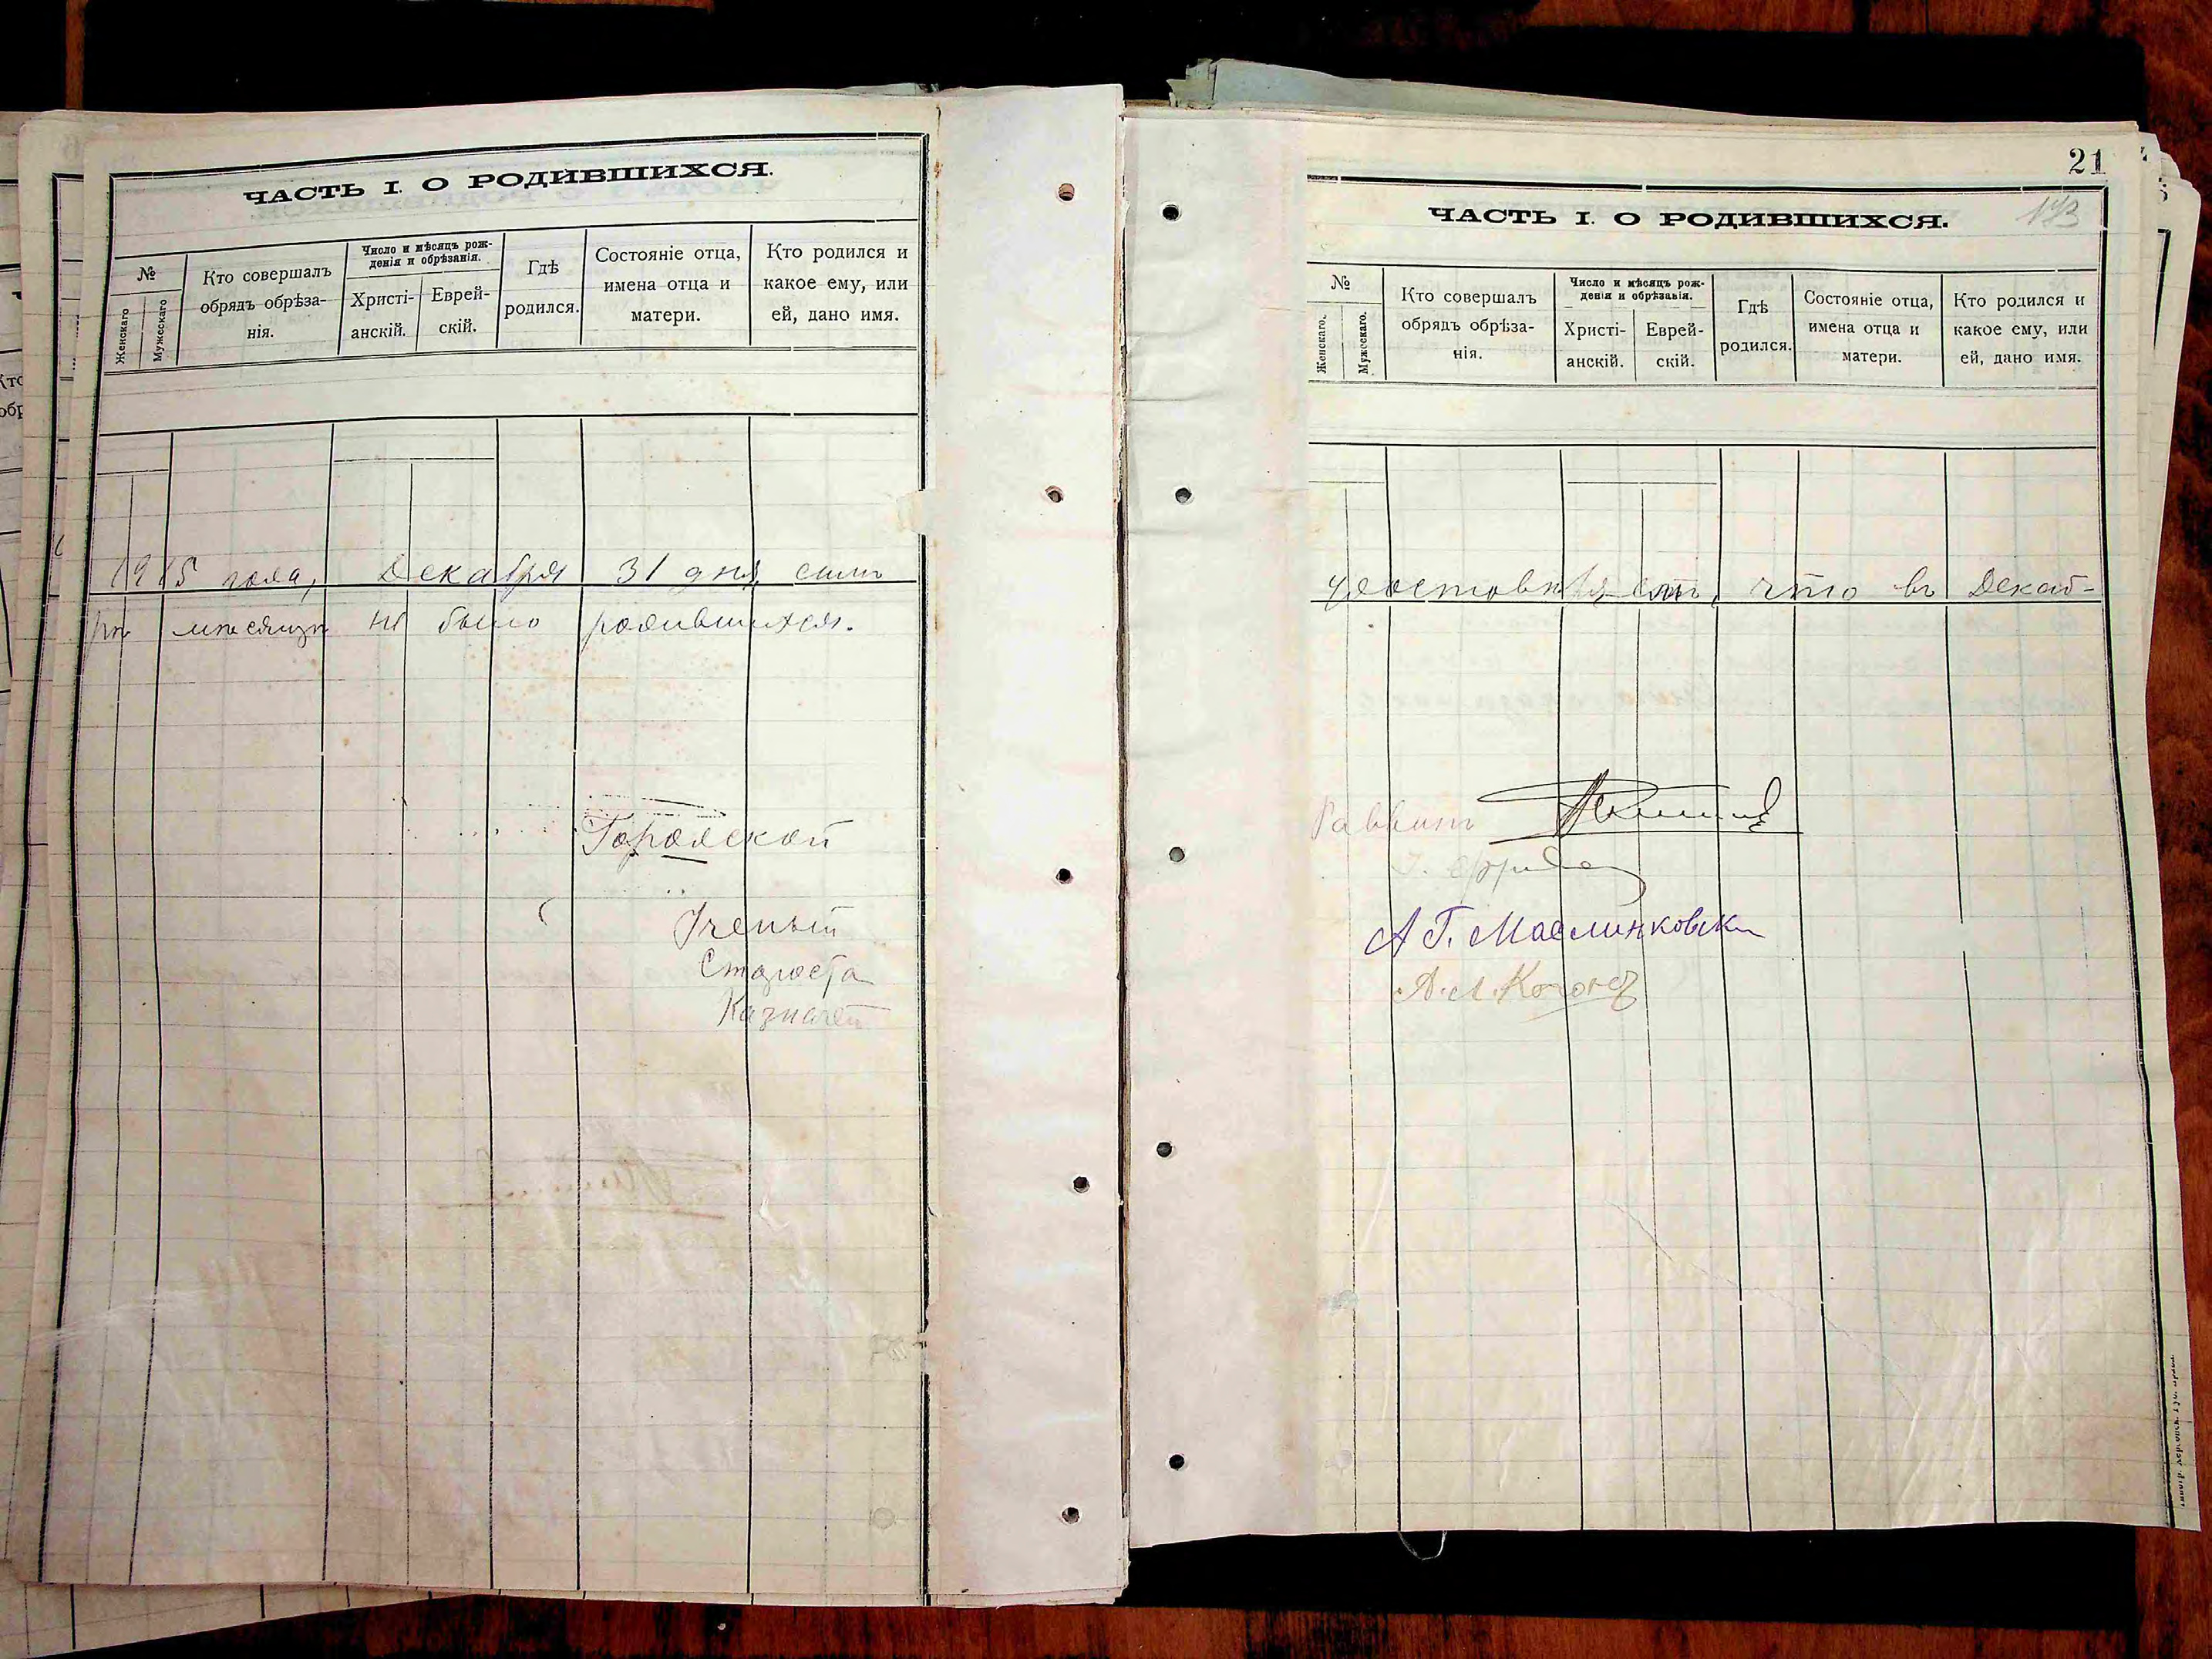 ЧАСТЬ I. О РОДИВШИХСЯ.
№
Женскаго
Мужескаго
Кто совершалъ
обрядъ обрѣза-
нія.
Число и мѣсяцъ рож-
денія и обрѣзанія.
Христі-
анскій.
Еврей-
скій.
Гдѣ
родился.
Состояніе отца,
имена отца и
матери.
Кто родился и
какое ему, или
ей, дано имя.
1915 года, Декабря 31 дня, симъ
рѣ мѣсяцѣ не было родившихся.
Городской
Ученый
Староста
Казначей
21
173
ЧАСТЬ I. О РОДИВШИХСЯ.
№
Женскаго.
Мужескаго.
Кто совершалъ
обрядъ обрѣза-
нія.
Число и мѣсяцъ рож-
денія и обрѣзанія.
Христі-
анскій.
Еврей-
скій.
Гдѣ
родился.
Состояніе отца,
имена отца и
матери.
Кто родился и
какое ему, или
ей, дано имя.
что въ Декаб-
Раввинъ
А Г. Маслинковски